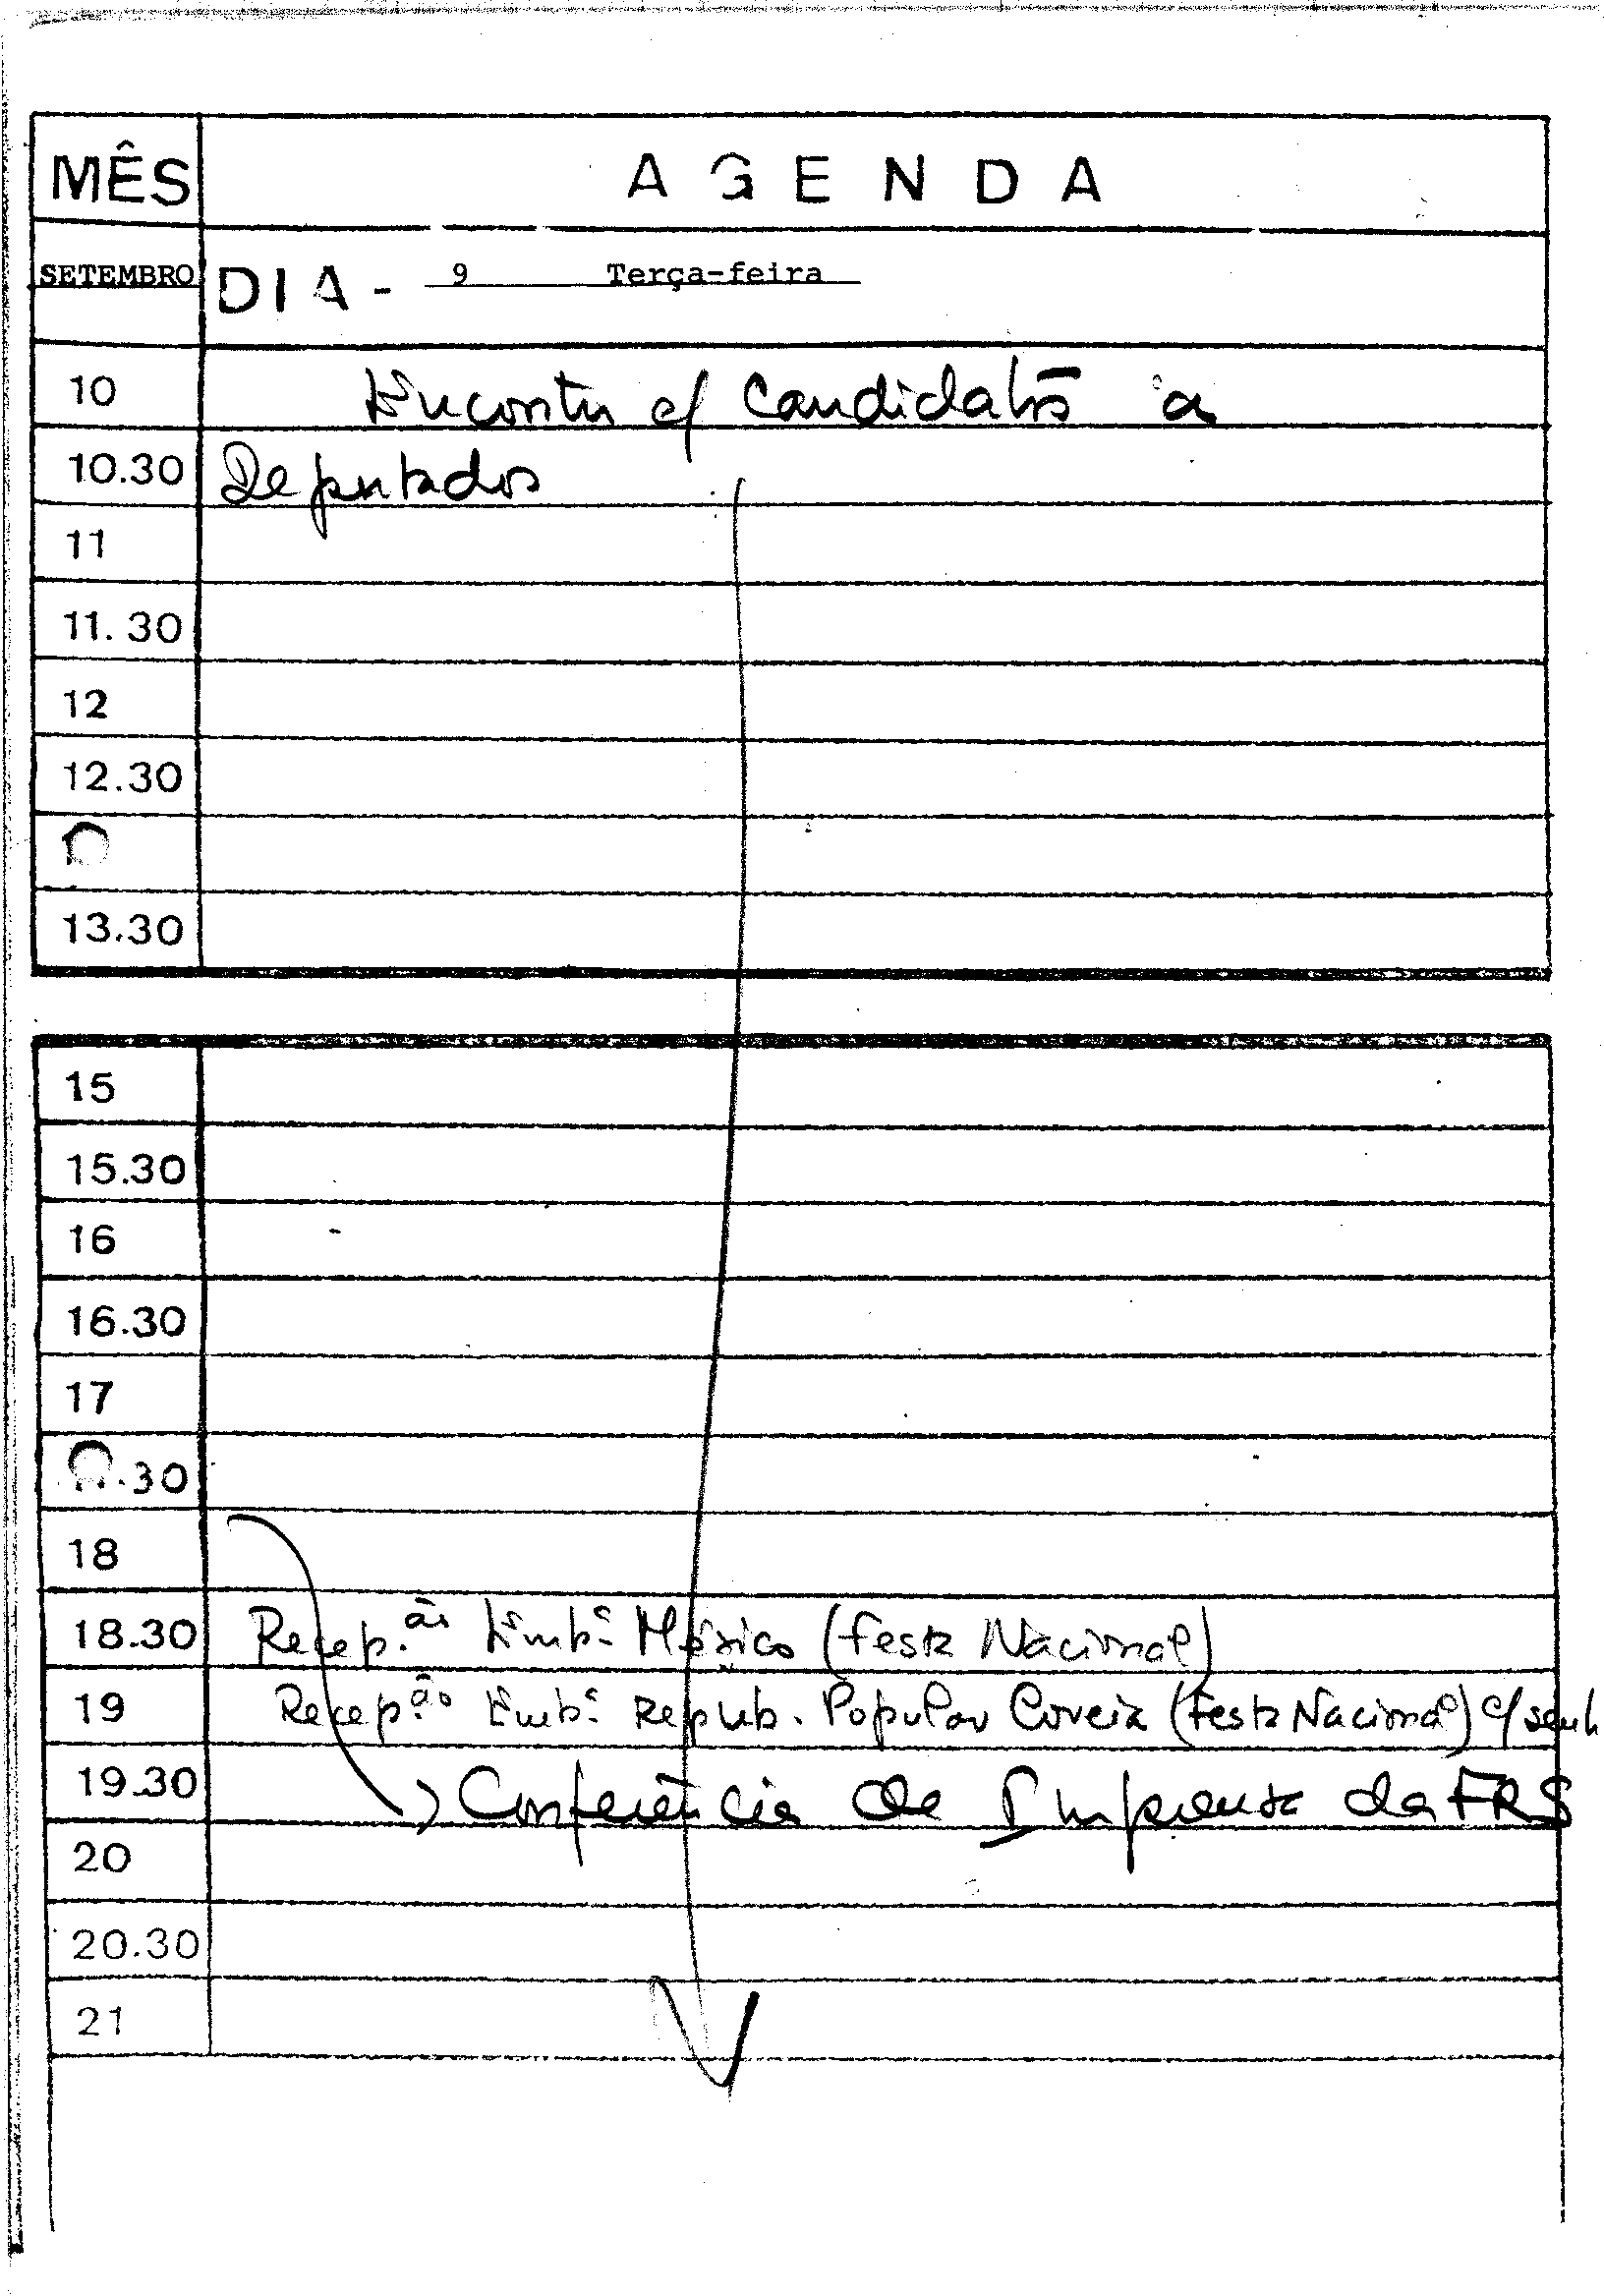 MÊS A G E N D A
SETEMBRO DIA - 9 Terça-feira
10 Encontro c/ Candidatos a
10.30 Deputados
11
11.30
12
12.30
1
13.30
15
15.30
16
16.30
17
.30
18
18.30 Recep.ão Emb.ª México (Festa Nacional)
19 Recep.ão Emb.ª Repub. Popular Coreia (Festa Nacional) c/ senh
19.30 Conferência de Imprensa da FRS
20
20.30
21